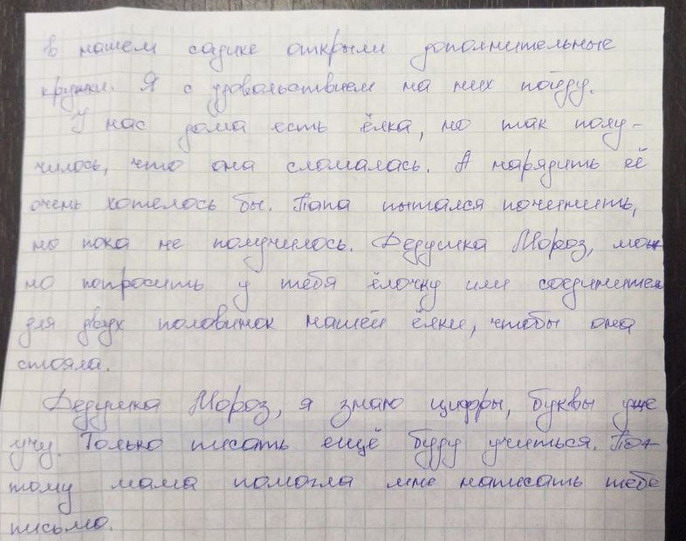 В нашем садике открыли дополнительные
кружки. Я с удовольствием на них пойду.
У нас дома есть ёлка, но так полу-
чилось, что она сломалась. А нарядить её
очень хотелось бы. Папа пытался починить,
но пока не получилось. Дедушка Мороз, мож-
но попросить у тебя ёлочку или соединител
для двух половинок нашей ёлки, чтобы она
стояла.
Дедушка Мороз, я знаю цифры, буквы уже
учу. Только писать ещё буду учиться. Поэ-
тому мама помогла мне написать тебе
письмо.